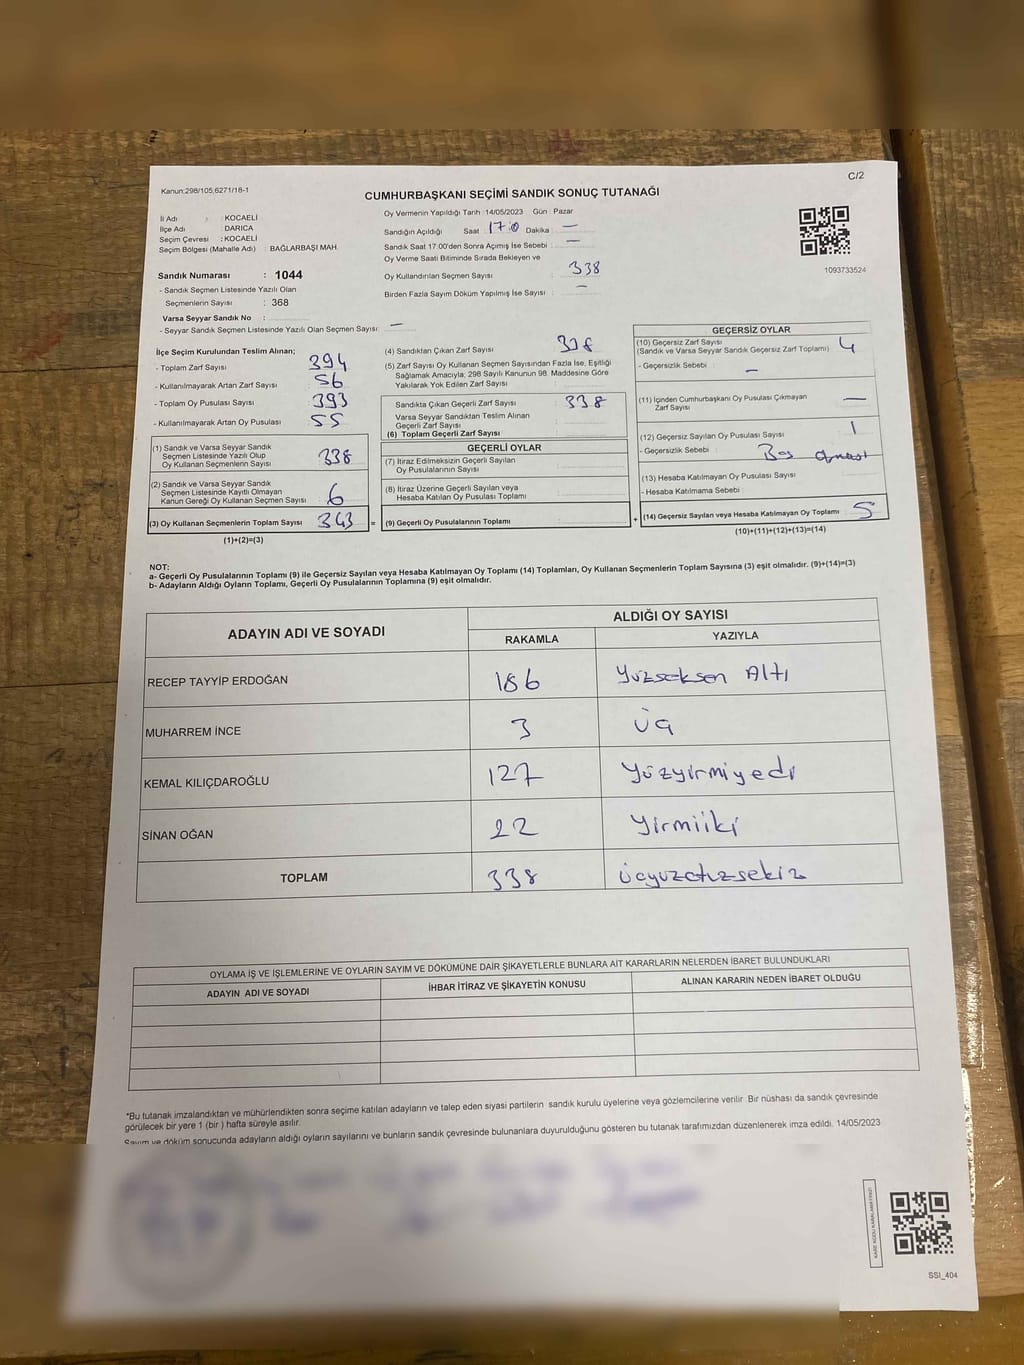 Kanun:298/105,6271/18-1
C/2
CUMHURBAŞKANI SEÇİMİ SANDIK SONUÇ TUTANAĞI
İl Adı : KOCAELİ
İlçe Adı : DARICA
Seçim Çevresi : KOCAELİ
Seçim Bölgesi (Mahalle Adı) : BAĞLARBAŞI MAH.
Sandık Numarası : 1044
- Sandık Seçmen Listesinde Yazılı Olan
Seçmenlerin Sayısı : 368
Varsa Seyyar Sandık No :
- Seyyar Sandık Seçmen Listesinde Yazılı Olan Seçmen Sayısı : —
Oy Vermenin Yapıldığı Tarih :14/05/2023 Gün : Pazar
Sandığın Açıldığı Saat 17:0 Dakika —
Sandık Saat 17.00'den Sonra Açımış İse Sebebi : —
Oy Verme Saati Bitiminde Sırada Bekleyen ve
Oy Kullandırılan Seçmen Sayısı : 338
Birden Fazla Sayım Döküm Yapılmış İse Sayısı : —
1093733524
İlçe Seçim Kurulundan Teslim Alınan;
- Toplam Zarf Sayısı : 394
- Kullanılmayarak Artan Zarf Sayısı : 56
- Toplam Oy Pusulası Sayısı : 393
- Kullanılmayarak Artan Oy Pusulası : 55
(1) Sandık ve Varsa Seyyar Sandık
Seçmen Listesinde Yazılı Olup
Oy Kullanan Seçmenlerin Sayısı : 338
(2) Sandık ve Varsa Seyyar Sandık
Seçmen Listesinde Kayıtlı Olmayan
Kanun Gereği Oy Kullanan Seçmen Sayısı : 6
(3) Oy Kullanan Seçmenlerin Toplam Sayısı : 343
(1)+(2)=(3)
=
(4) Sandıktan Çıkan Zarf Sayısı : 338
(5) Zarf Sayısı Oy Kullanan Seçmen Sayısından Fazla İse, Eşitliği
Sağlamak Amacıyla; 298 Sayılı Kanunun 98. Maddesine Göre
Yakılarak Yok Edilen Zarf Sayısı :
Sandıkta Çıkan Geçerli Zarf Sayısı : 338
Varsa Seyyar Sandıktan Teslim Alınan
Geçerli Zarf Sayısı :
(6) Toplam Geçerli Zarf Sayısı :
GEÇERLİ OYLAR
(7) İtiraz Edilmeksizin Geçerli Sayılan
Oy Pusulalarının Sayısı :
(8) İtiraz Üzerine Geçerli Sayılan veya
Hesaba Katılan Oy Pusulası Toplamı :
(9) Geçerli Oy Pusulalarının Toplamı :
+
GEÇERSİZ OYLAR
(10) Geçersiz Zarf Sayısı : 4
(Sandık ve Varsa Seyyar Sandık Geçersiz Zarf Toplamı)
- Geçersizlik Sebebi : —
(11) İçinden Cumhurbaşkanı Oy Pusulası Çıkmayan
Zarf Sayısı : —
(12) Geçersiz Sayılan Oy Pusulası Sayısı : 1
- Geçersizlik Sebebi : Boş
(13) Hesaba Katılmayan Oy Pusulası Sayısı
- Hesaba Katılmama Sebebi :
(14) Geçersiz Sayılan veya Hesaba Katılmayan Oy Toplamı : 5
(10)+(11)+(12)+(13)=(14)
NOT:
a- Geçerli Oy Pusulalarının Toplamı (9) ile Geçersiz Sayılan veya Hesaba Katılmayan Oy Toplamı (14) Toplamları, Oy Kullanan Seçmenlerin Toplam Sayısına (3) eşit olmalıdır. (9)+(14)=(3)
b- Adayların Aldığı Oyların Toplamı, Geçerli Oy Pusulalarının Toplamına (9) eşit olmalıdır.
ADAYIN ADI VE SOYADI
ALDIĞI OY SAYISI
RAKAMLA YAZIYLA
RECEP TAYYİP ERDOĞAN 186 Yüzseksen Altı
MUHARREM İNCE 3 Üç
KEMAL KILIÇDAROĞLU 127 Yüzyirmiyedi
SİNAN OĞAN 22 Yirmiiki
TOPLAM 338 Üçyüzotuzsekiz
OYLAMA İŞ VE İŞLEMLERİNE VE OYLARIN SAYIM VE DÖKÜMÜNE DAİR ŞİKAYETLERLE BUNLARA AİT KARARLARIN NELERDEN İBARET BULUNDUKLARI
ADAYIN ADI VE SOYADI İHBAR İTİRAZ VE ŞİKAYETİN KONUSU ALINAN KARARIN NEDEN İBARET OLDUĞU
*Bu tutanak imzalandıktan ve mühürlendikten sonra seçime katılan adayların ve talep eden siyasi partilerin sandık kurulu üyelerine veya gözlemcilerine verilir Bir nüshası da sandık çevresinde
görülecek bir yere 1 (bir ) hafta süreyle asılır.
Sayım ve döküm sonucunda adayların aldığı oyların sayılarını ve bunların sandık çevresinde bulunanlara duyurulduğunu gösteren bu tutanak tarafımızdan düzenlenerek imza edildi. 14/05/2023
SSİ_404